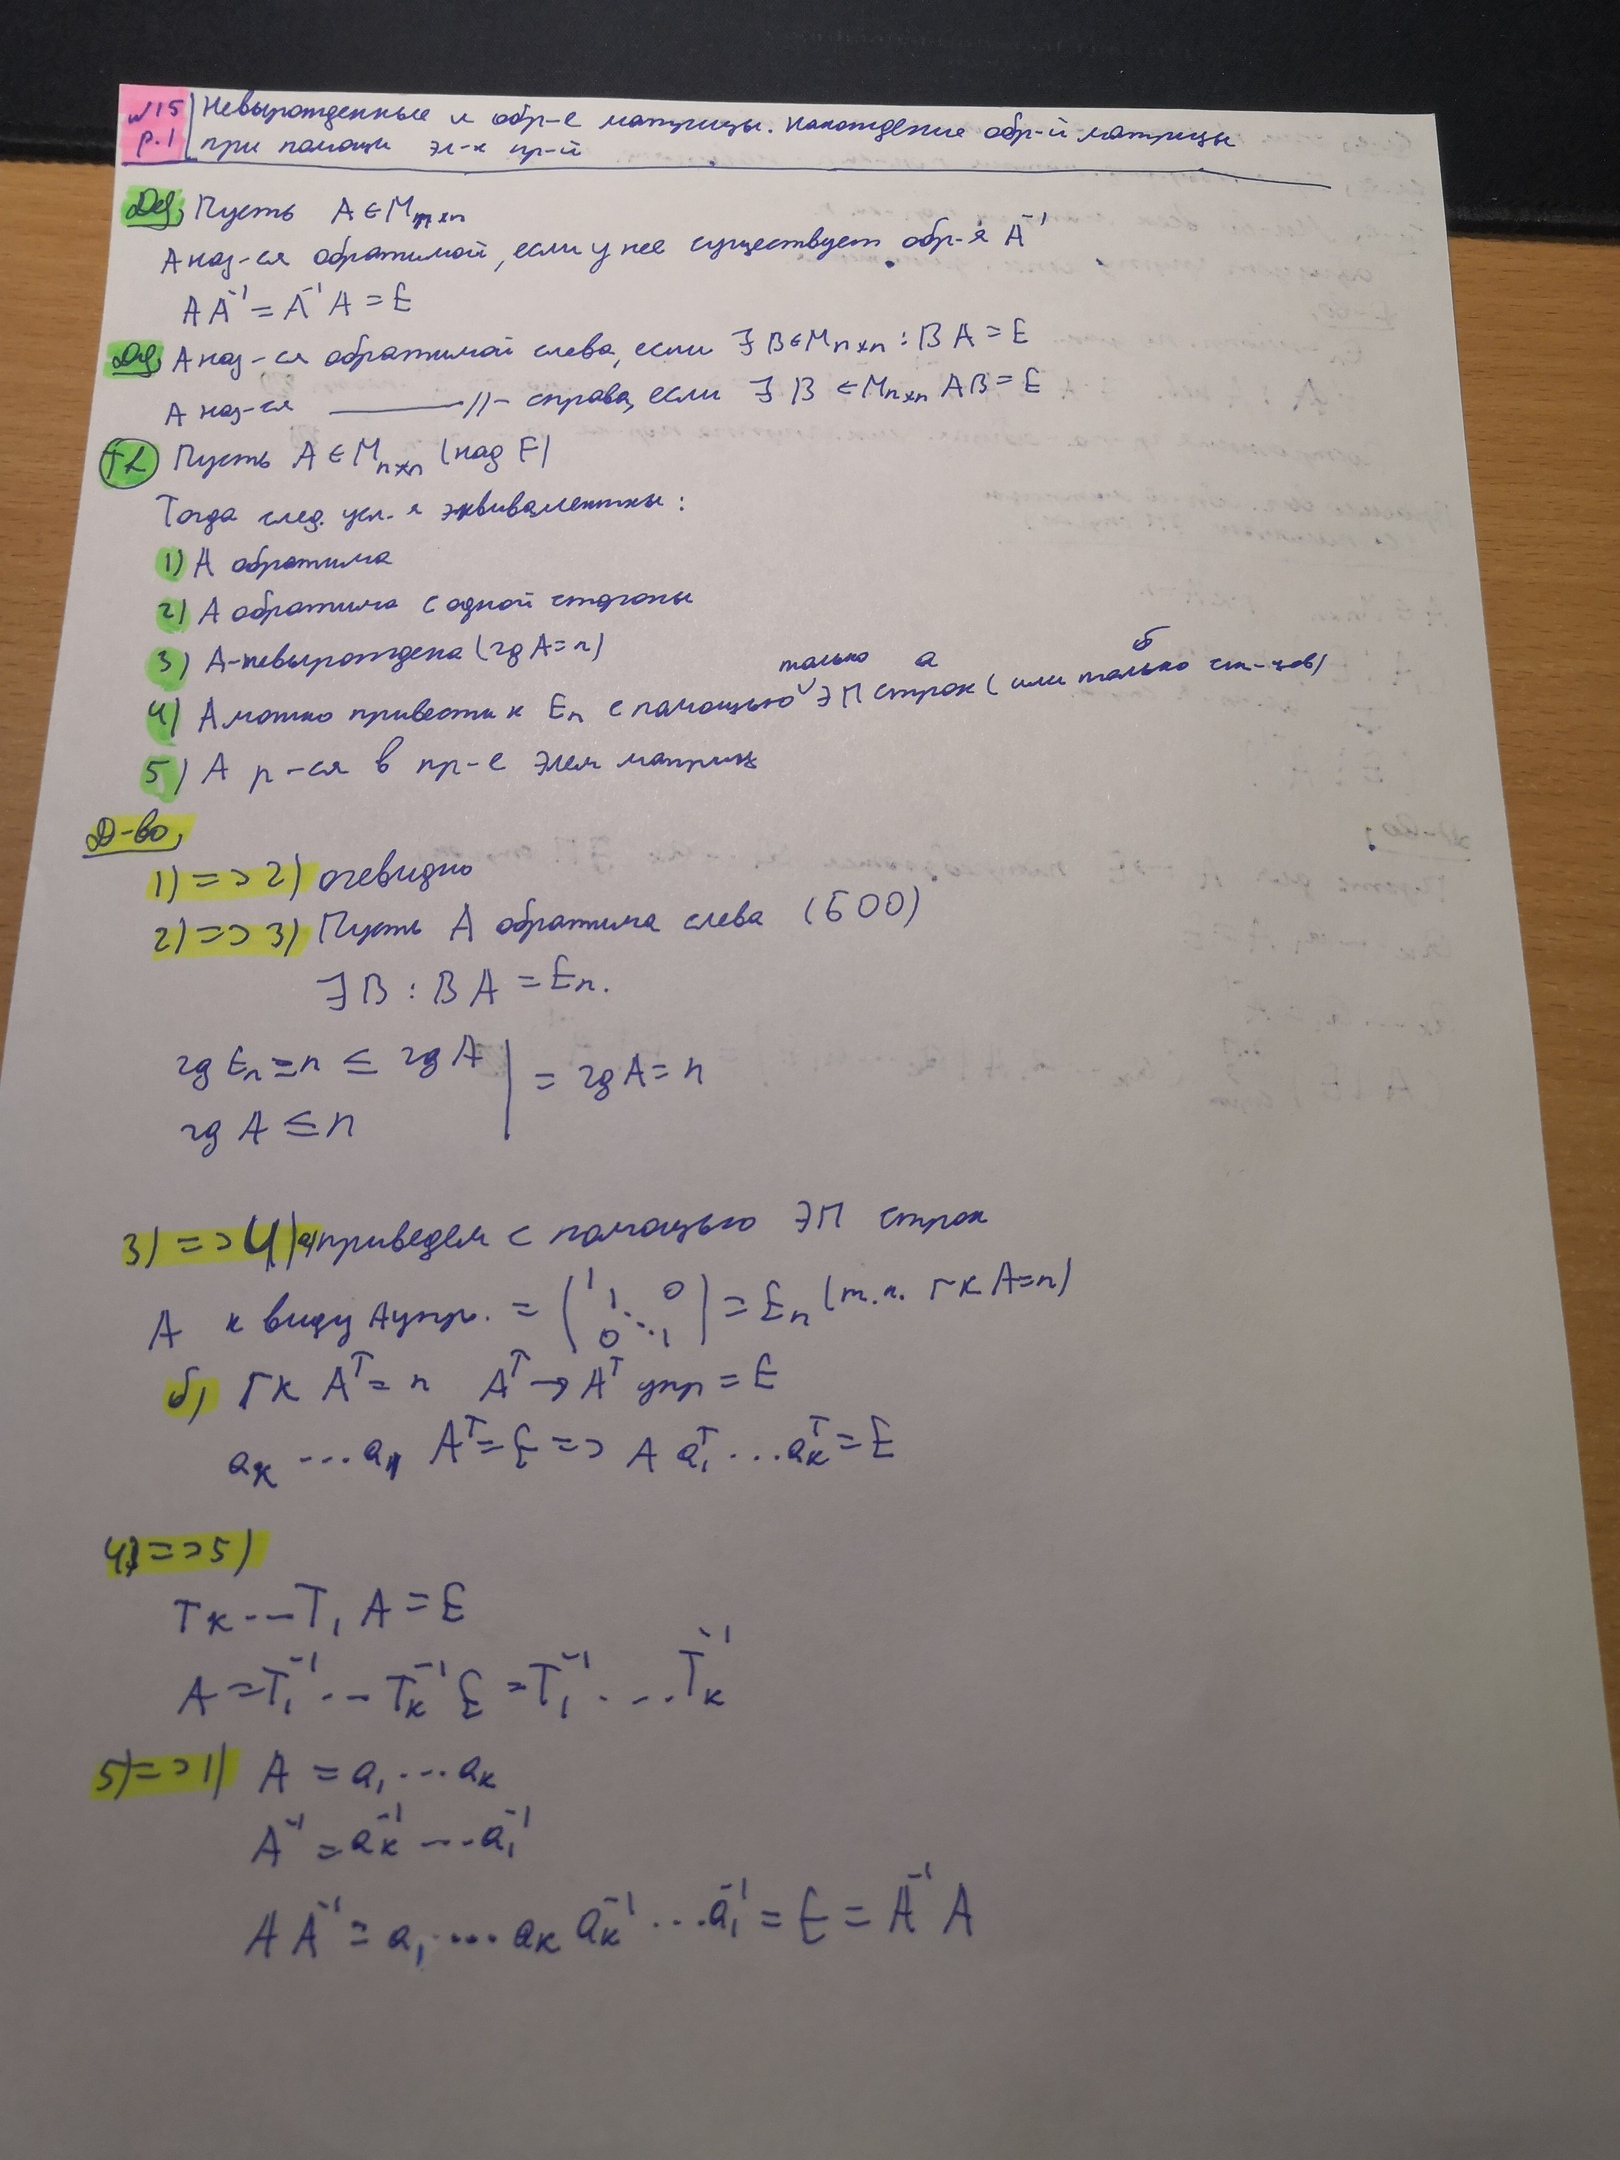 №15 Невырожденные и обр-е матрицы. Нахождение обр-й матрицы
р.1 при помощи эл-х пр-й
Def, Пусть A ∈ M m×n
A наз-ся обратимой, если у нее существует обр-я A⁻¹
A A⁻¹ = A⁻¹ A = E
Def, A наз-ся обратимой слева, если ∃ B ∈ M n×n : B A = E
A наз-ся ———//— справа, если ∃ B ∈ M n×n AB = E
Пусть A ∈ M n×n (над F)
Тогда след. усл-я эквивалентны:
1) A обратима
2) A обратима с одной стороны
3) A-невырождена (rg A = n)
только а б
4) A можно привести к Eₙ с помощью ЭП строк (или только ст-цов)
5) A р-ся в пр-е элем матриц
Д-во,
1) => 2) очевидно
2) => 3) Пусть A обратима слева (БОО)
∃ B : B A = Eₙ.
rg Eₙ = n ≤ rg A | = rg A = n
rg A ≤ n
3) => 4) а) приведем с помощью ЭП строк
A к виду A упр. = (1 1 ⋱ 1 0 0) = Eₙ (т.к. rk A = n)
б) rk Aᵀ = n Aᵀ → Aᵀ упр = E
aₖ ... a₁ Aᵀ = E => A a₁ᵀ ... aₖᵀ = E
4) => 5)
Tₖ --- T₁ A = E
A = T₁⁻¹ ... Tₖ⁻¹ E = T₁⁻¹ ... Tₖ⁻¹
5) => 1) A = a₁ ... aₖ
A⁻¹ = aₖ⁻¹ --- a₁⁻¹
A A⁻¹ = a₁ ... aₖ aₖ⁻¹ ... a₁⁻¹ = E = A⁻¹ A